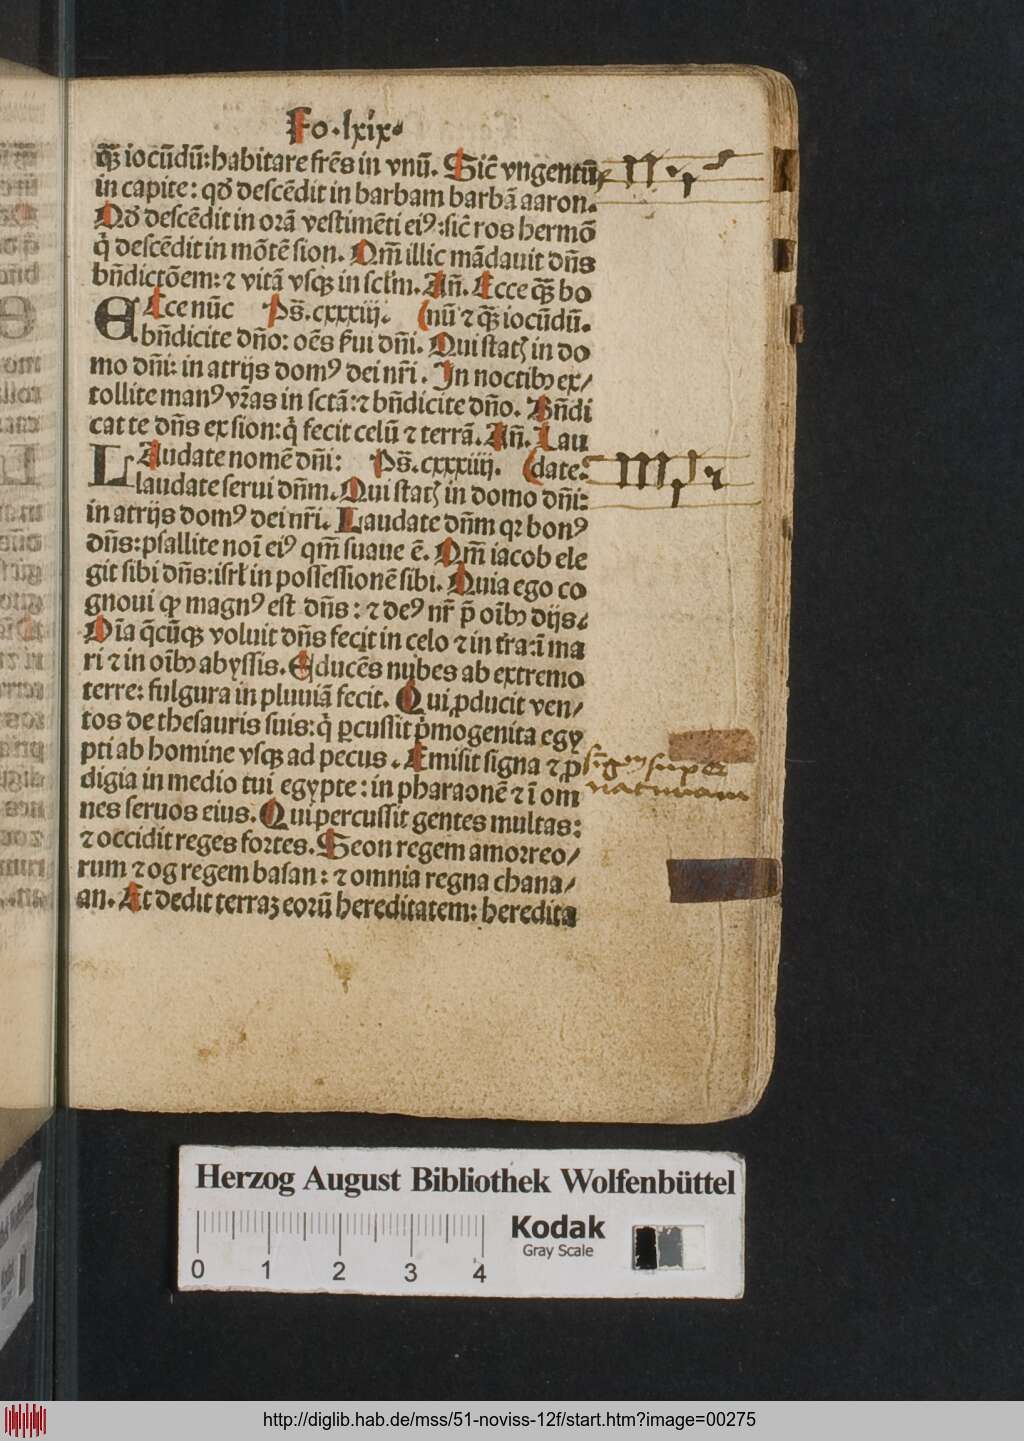 Fo. lxix.
q̄ꝫ iocūdū: habitare fr̄es in vnū. Sic̄ vngentū
in capite: qd̄ descēdit in barbam barbā aaron.
Qd̄ descēdit in orā vestimēti eiꝰ: sic̄ ros hermō
q̄ descēdit in mōtē sion. Qm̄ illic mādauit dn̄s
bn̄dictōem: ⁊ vitā vsqꝫ in scl̄m. An̄. Ecce q̄ꝫ bo
Ecce nūc Ps̄. cxxxiij. (nū ⁊ q̄ꝫ iocūdū.
bn̄dicite dn̄o: oēs ẜui dn̄i. Qui statꝭ in do
mo dn̄i: in atrijs domꝰ dei nr̄i. In noctibꝫ ex/
tollite manꝰ vr̄as in sctā: ⁊ bn̄dicite dn̄o. Bn̄di
cat te dn̄s ex sion: q̄ fecit celū ⁊ terrā. An̄. Lau
Laudate nomē dn̄i: Ps̄. cxxxiiij. (date.
laudate serui dn̄m. Qui statꝭ in domo dn̄i:
in atrijs domꝰ dei nr̄i. Laudate dn̄m qꝛ bonꝰ
dn̄s: psallite noi̅ eiꝰ qm̄ suaue ē. Qm̄ iacob ele
git sibi dn̄s: isrl̄ in possessionē sibi. Quia ego co
gnoui ꝙ magnꝰ est dn̄s: ⁊ deꝰ nr̄ p̄ oi̅bꝫ dijs.
Oi̅a q̄cūqꝫ voluit dn̄s fecit in celo ⁊ in tr̄a: ī ma
ri ⁊ in oi̅bꝫ abyssis. Educēs nubes ab extremo
terre: fulgura in pluuiā fecit. Qui ꝓducit ven/
tos de thesauris suis: q̄ ꝑcussit p̄mogenita egy
pti ab homine vsqꝫ ad pecus. Emisit signa ⁊ ꝓ
digia in medio tui egypte: in pharaonē ⁊ ī om
nes seruos eius. Qui percussit gentes multas:
⁊ occidit reges fortes. Seon regem amorreo/
rum ⁊ og regem basan: ⁊ omnia regna chana/
an. Et dedit terraꝫ eorū hereditatem: heredita
super
naturam
Herzog August Bibliothek Wolfenbüttel
Kodak
Gray Scale
0 1 2 3 4
http://diglib.hab.de/mss/51-noviss-12f/start.htm?image=00275